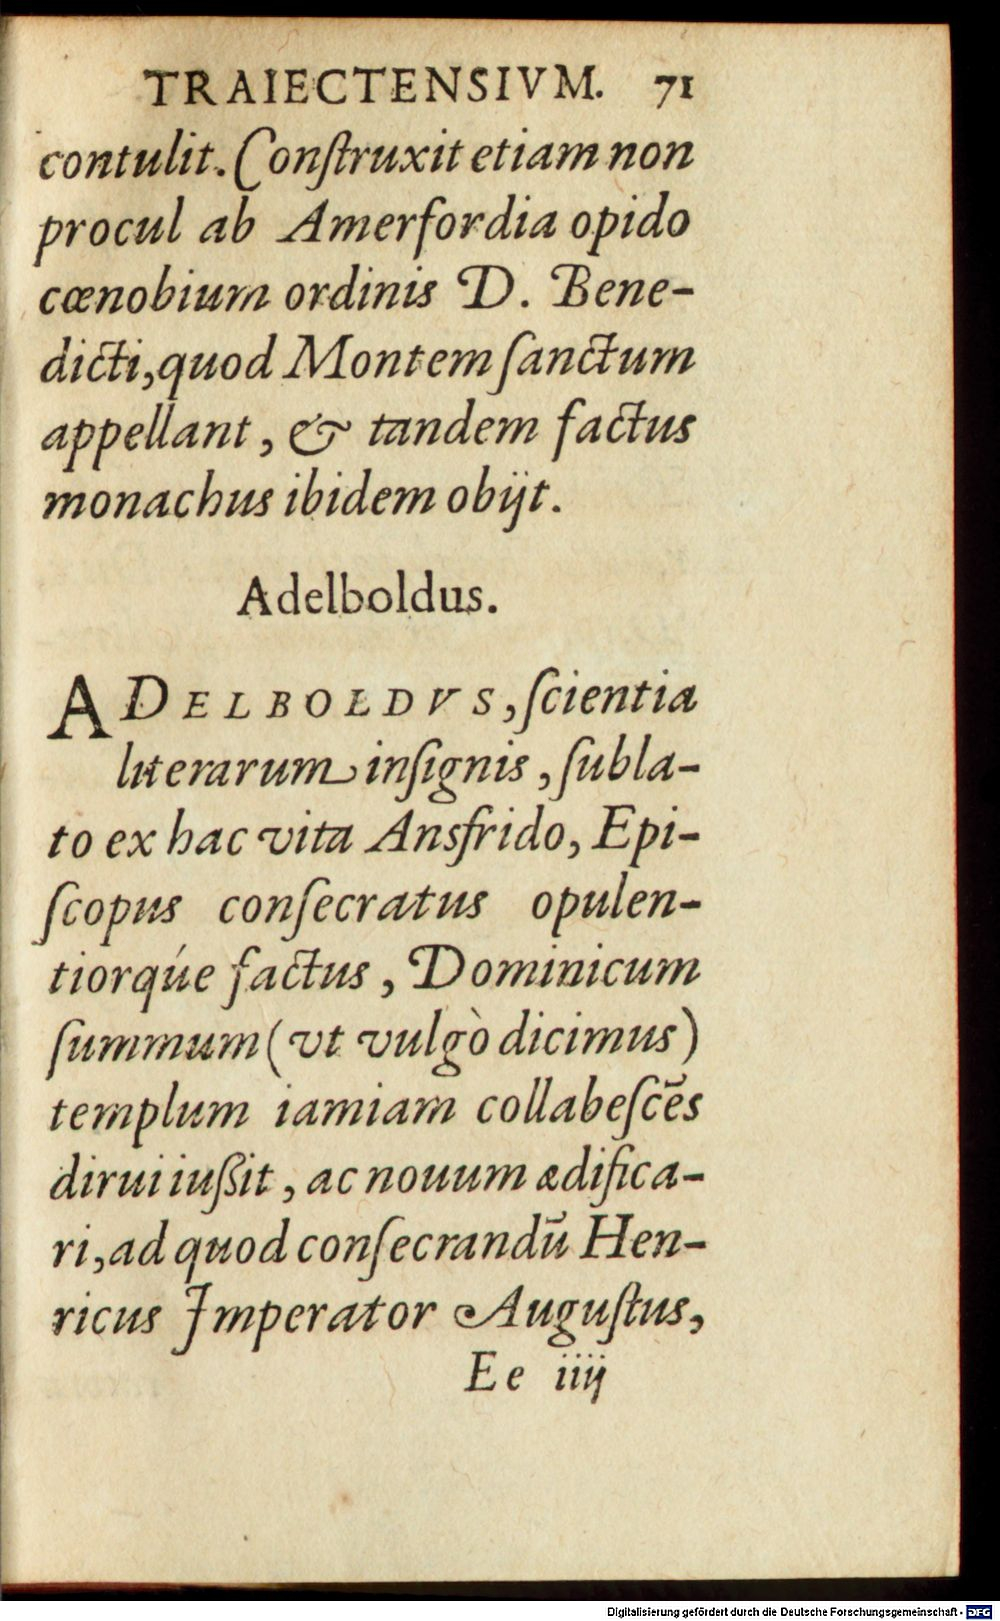 TRAIECTENSIVM. 71
contulit. Conſtruxit etiam non
procul ab Amerfordia opido
cœnobium ordinis D. Bene-
dicti, quod Montem ſanctum
appellant, & tandem factus
monachus ibidem obijt.
Adelboldus.
ADELBOLDVS, ſcientia
literarum inſignis, ſubla-
to ex hac vita Ansfrido, Epi-
ſcopus conſecratus opulen-
tiorqúe factus, Dominicum
ſummum (vt vulgò dicimus)
templum iamiam collabeſcẽs
dirui iuſsit, ac nouum ædifica-
ri, ad quod conſecrandũ Hen-
ricus Imperator Auguſtus,
Ee iiij
Digitalisierung gefördert durch die Deutsche Forschungsgemeinschaft - DFG